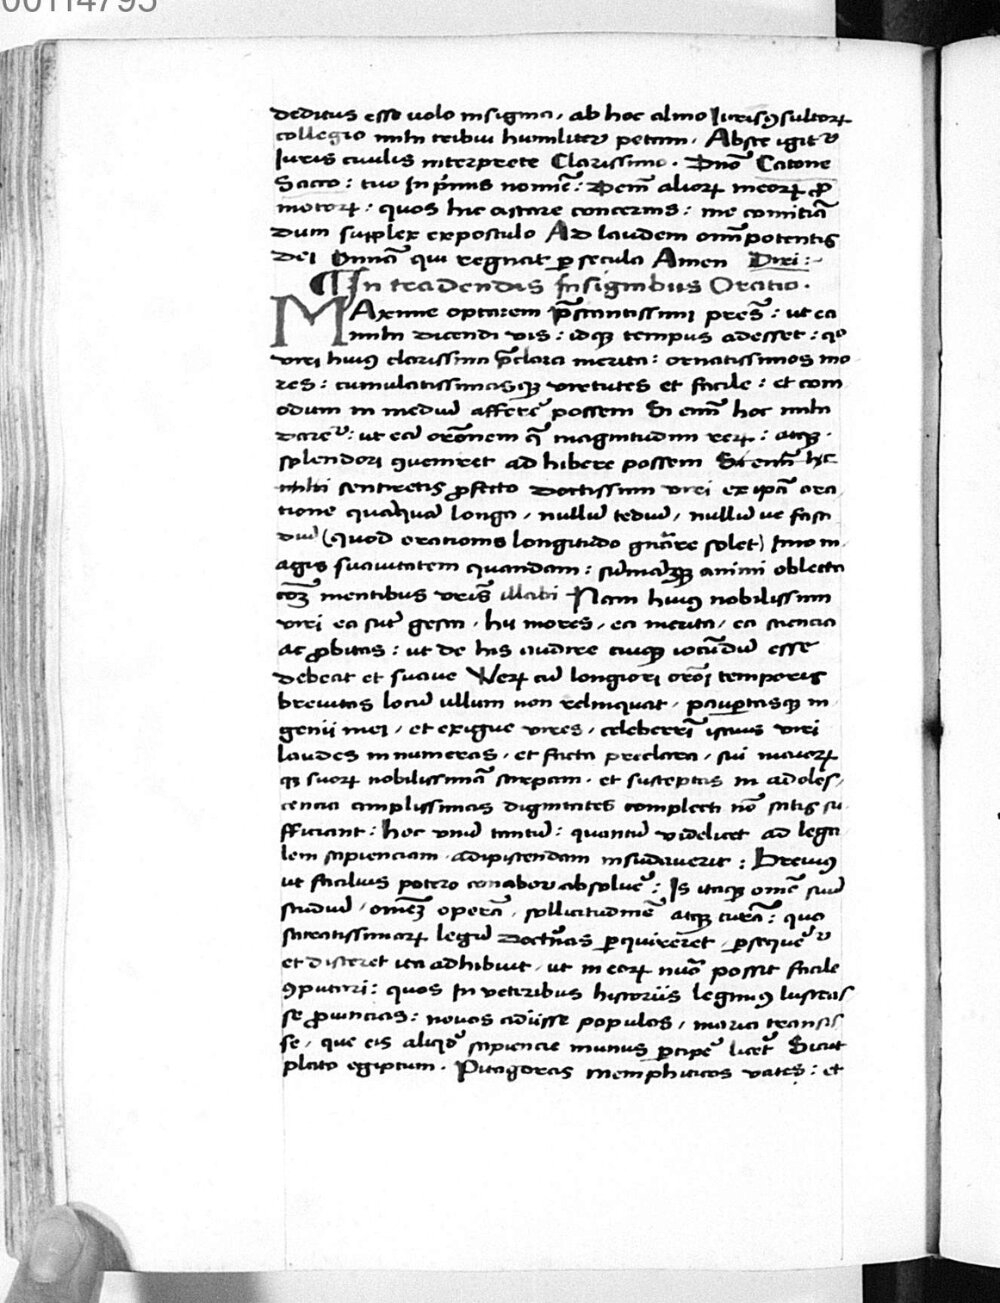 00114795
deditus esse uolo insignia, ab hoc almo Iurisꝯsultoꝝ
collegio mihi tribui humiliter petam, Abste igit᷑
Iuris ciuilis interprete Clarissimo. Dn̄o Catone
Sacco: tuo In p̄mis nomīe: Dem̄ alioꝝ meoꝝ ꝓ
motoꝝ: quos hic astare concernis: me comitiā
dum supplex expostulo Ad laudem om̄ipotentis
dei Omn̄ia qui regnat ꝑ secula Amen Dixi:
¶ In tradendis Insignibus Oratio.
MAxime optarem p̄stantissimi pres̄: ut ea
mihi dicendi uis: idqꝫ tempus adesset: qͦ
uiri huiꝯ clarissima p̄clara merita: ornatissimos mo
res: cumulatissimasqꝫ uirtutes et facile: et com
odum in mediū afferē possem Si enim̄ hoc mihi
daret᷑: ut eā orōnem q̄ magnitudini reꝝ: atqꝫ
splendori ꝯueniret ad hibere possem Si enim̄ hic
mihi sentiretis ꝓfecto doctissimi uiri ex ip̄a ora
tione quāquā longa, nullū tediū, nullū ue fasti
diū (quod orationis longitudo gn̄are solet) Imo m
agis suauitatem quandam: sūmāqꝫ animi oblecta
cōꝫ mentibus uris̄ illabi Nam huiꝯ nobilissimi
uiri ea sūt gesta, hii mores, ea merita, ea sciencia
ac ꝓbitas: ut de his audire cuiqꝫ iocūdū esse
debeat et suaue Veꝝ cū longiori orōi temporis
breuitas locū ullum non relinquat, pauꝑtasqꝫ in
genii mei, et exigue uires, celeberrī istius uiri
laudes innumeras, et facta preclara, sui maioꝝ
qꝫ suoꝝ nobilissimā stirpem, et susceptas in adoles,
cencia amplissimas dignitates complecti nō satis su
fficiant: hoc unū tantū: quantū uidelicet ad lega
lem sapienciam adipiscendam insudauerit: Breuiꝯ
ut facilius potero conabor absoluē: Is itaqꝫ omē suū
studiū, omēꝫ operā, sollicitudinē atqꝫ curā: quo
sacratissimaꝝ legū doctrīas ꝑquireret, ꝑseque᷑r
et disceret ita adhibuit, ut in eoꝝ nūo possit facile
ꝯputari: quos In ueteribus historiis legimꝯ lustras
se ꝓuincias: nouos adiisse populos, maria transis
se, que eis aliqͦd sapiencie munus ꝑcipē licet᷑ Sicut
plato egiptum. Pitagoras memphiticos uates: et